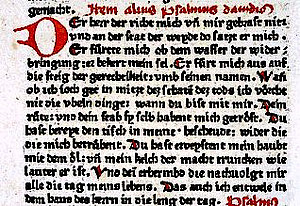 gemacht. Item alius Psalmus dauidis
Der herr der richt mich vñ mir gebast nietz
vnd an der stat der weyde do satzt er mich.
Er fürete mich ob dem wasser der wider
bringung: er bekert mein sel. Er fürt mich aus auf
die steig der gerechtikeit: vmb seinen namen. Wañ
ob ich ioch gee in mitzt des schatten des tods ich vörcht
nit die vbeln dinge: wann du bist mit mir. Dein
rute: vnd dein stab sy selb habent mich getröst. Du
hast bereyt den tisch in meine bescheude: wider die
die mich betrübent. Du hast erveystent mein haubt
mit dem öl: vñ mein kelch der macht truncken wie
lauter er ist. Vnd dein erbermbd die nachuolgt mir
alle die tag meins lebens. Das auch ich entwele in
dem haus des herrn in die leng der tag. Psalmo